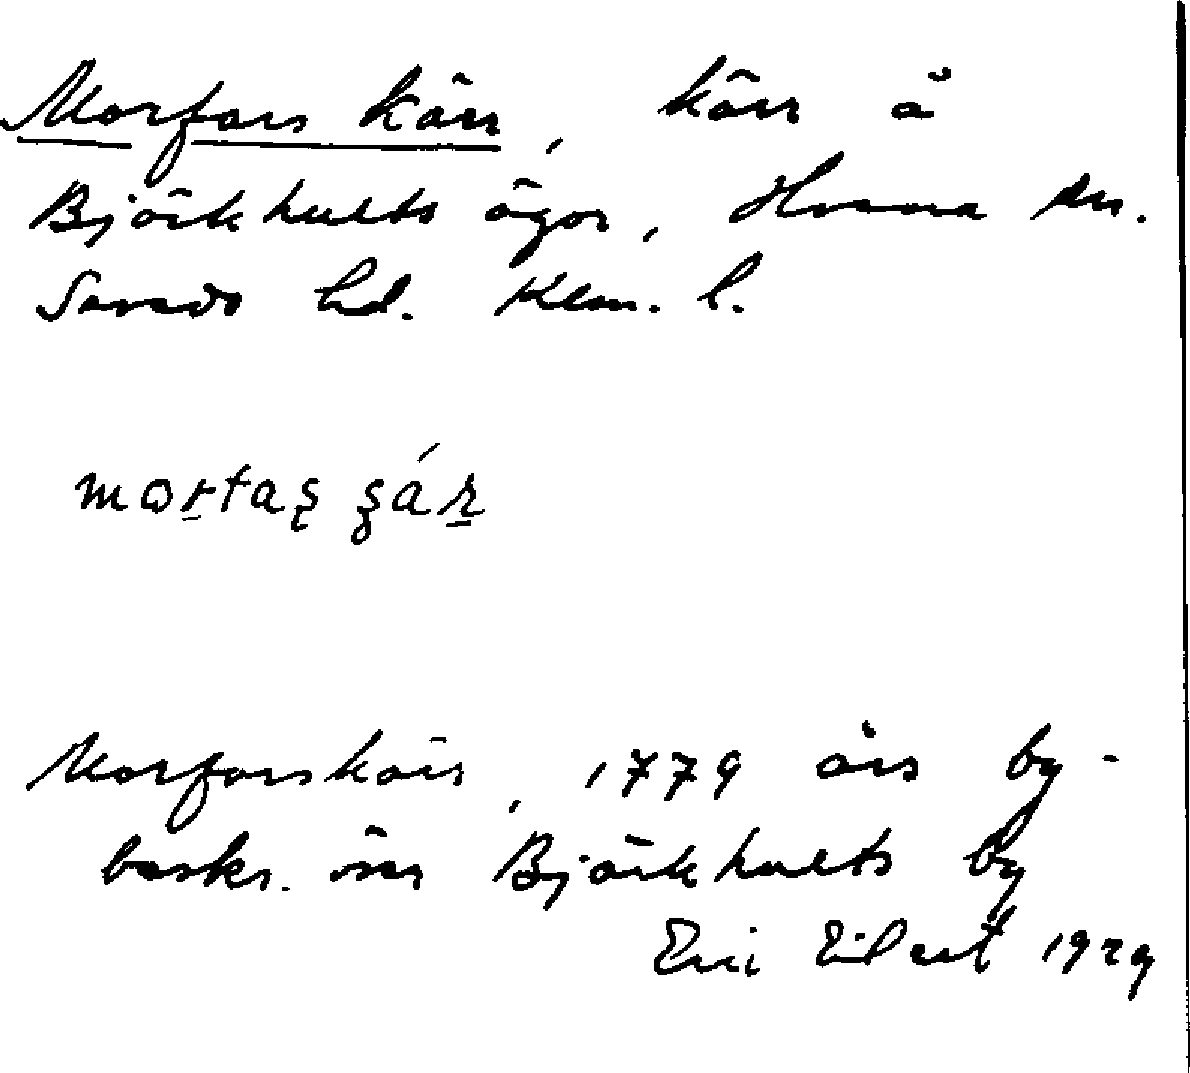 Morfars kärr, kärr å
Björkhults ägor, Horna sn.
hd. Klm. l.
Morfarskärr, 1779 års by-
beskr. över Björkhults by
Eric Eilert 1929